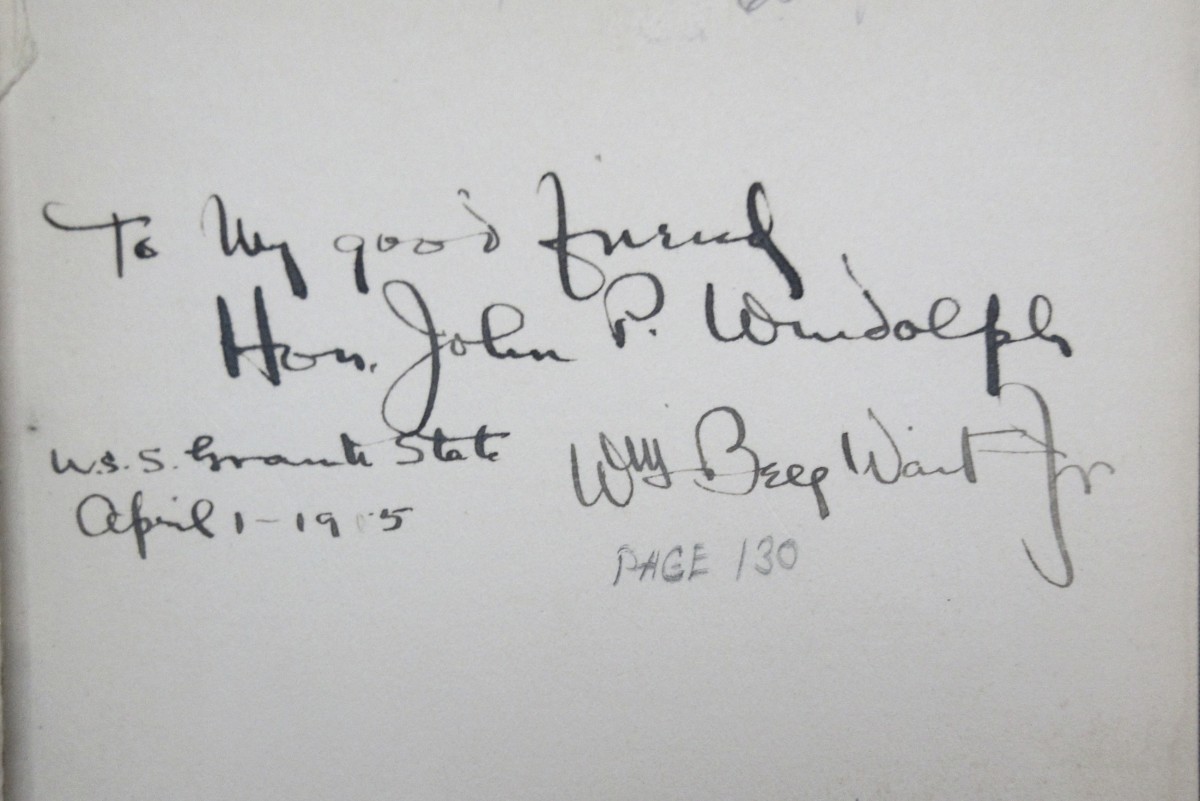 To My good friend
Hon. John P. Windolph
U.S.S. Granite State
April 1-1915
Wm Bell Wait Jr
PAGE 130